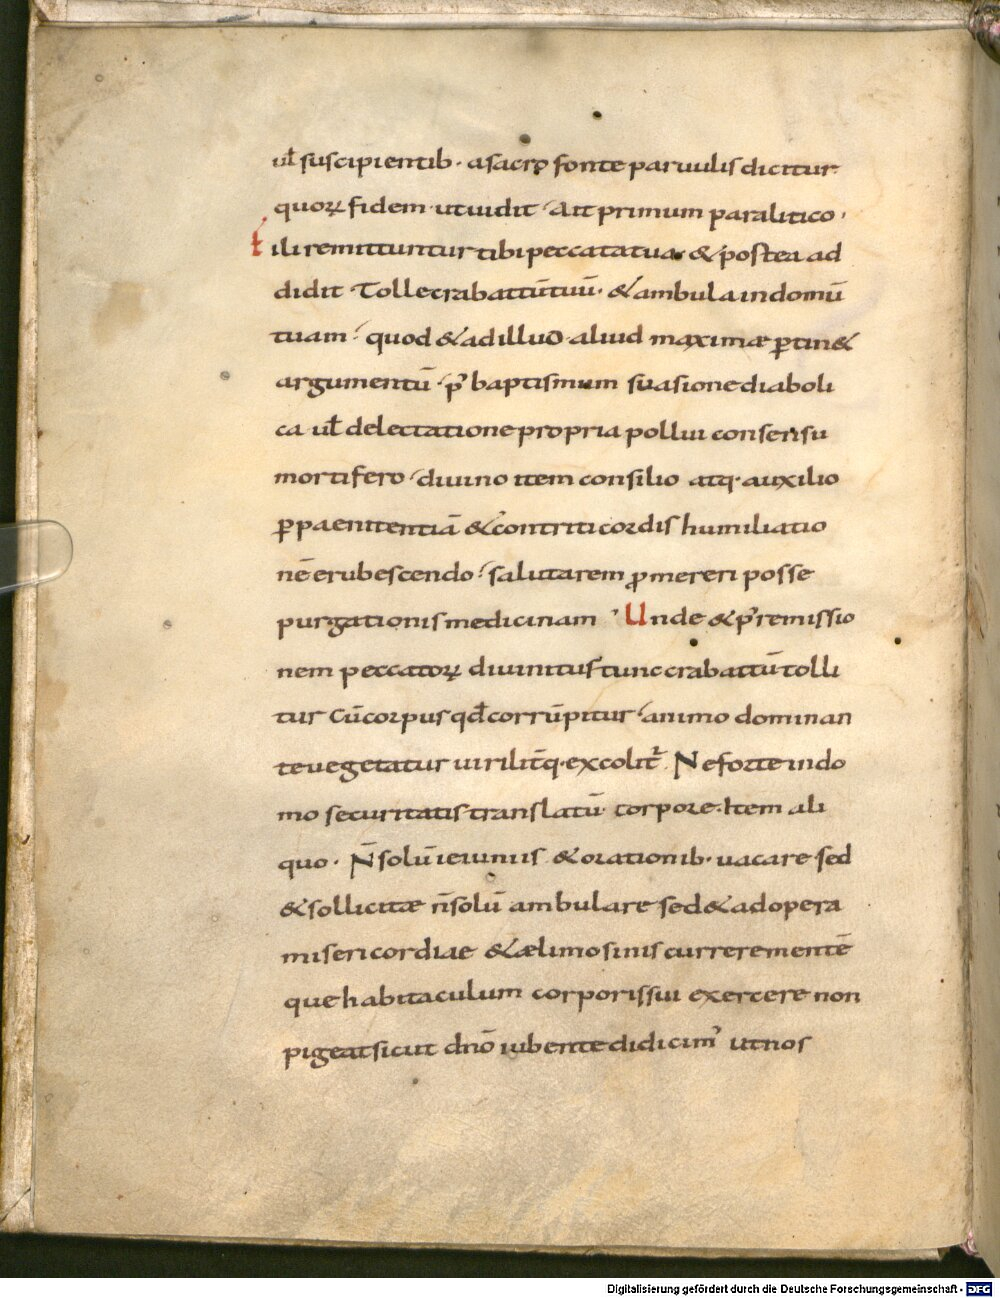 ul̄ suscipientib· a sacro fonte paruulis dicitur
quoꝝ fidem ut uidit· Ait primum paralitico·
fili remittuntur tibi peccata tua· & postea ad
didit· Tolle crabattū tuū· & ambula in domū
tuam· quod & ad illud aliud maximæ ꝑtin&
argumentū· pꝰ baptismum suasione diaboli
ca ul̄ delectatione propria pollui consensu
mortifero· diuino item consilio atq· auxilio
ꝑ paenitentiā & contriti cordis humiliatio
nē erubescendo· salutarem ꝓmereri posse
purgationis medicinam· Unde & pꝰ remissio
nem peccatoꝝ diuinitus tunc crabattū tolli
tur cū corpus qd̄ corrūpitur· animo dominan
te uegetatur uirilit̄q· excolit̄ Ne forte in do
mo securitatis translatū corpore· Item ali
quo· N̄ solū ieiuniis & orationib· uacare sed
& sollicitæ n̄ solū ambulare sed & ad opera
misericordiae & ælimosinis currere mentē
que habitaculum corporis sui exercere non
pigeat sicut dn̄o iubente didicimꝰ ut nos
Digitalisierung gefördert durch die Deutsche Forschungsgemeinschaft - DFG